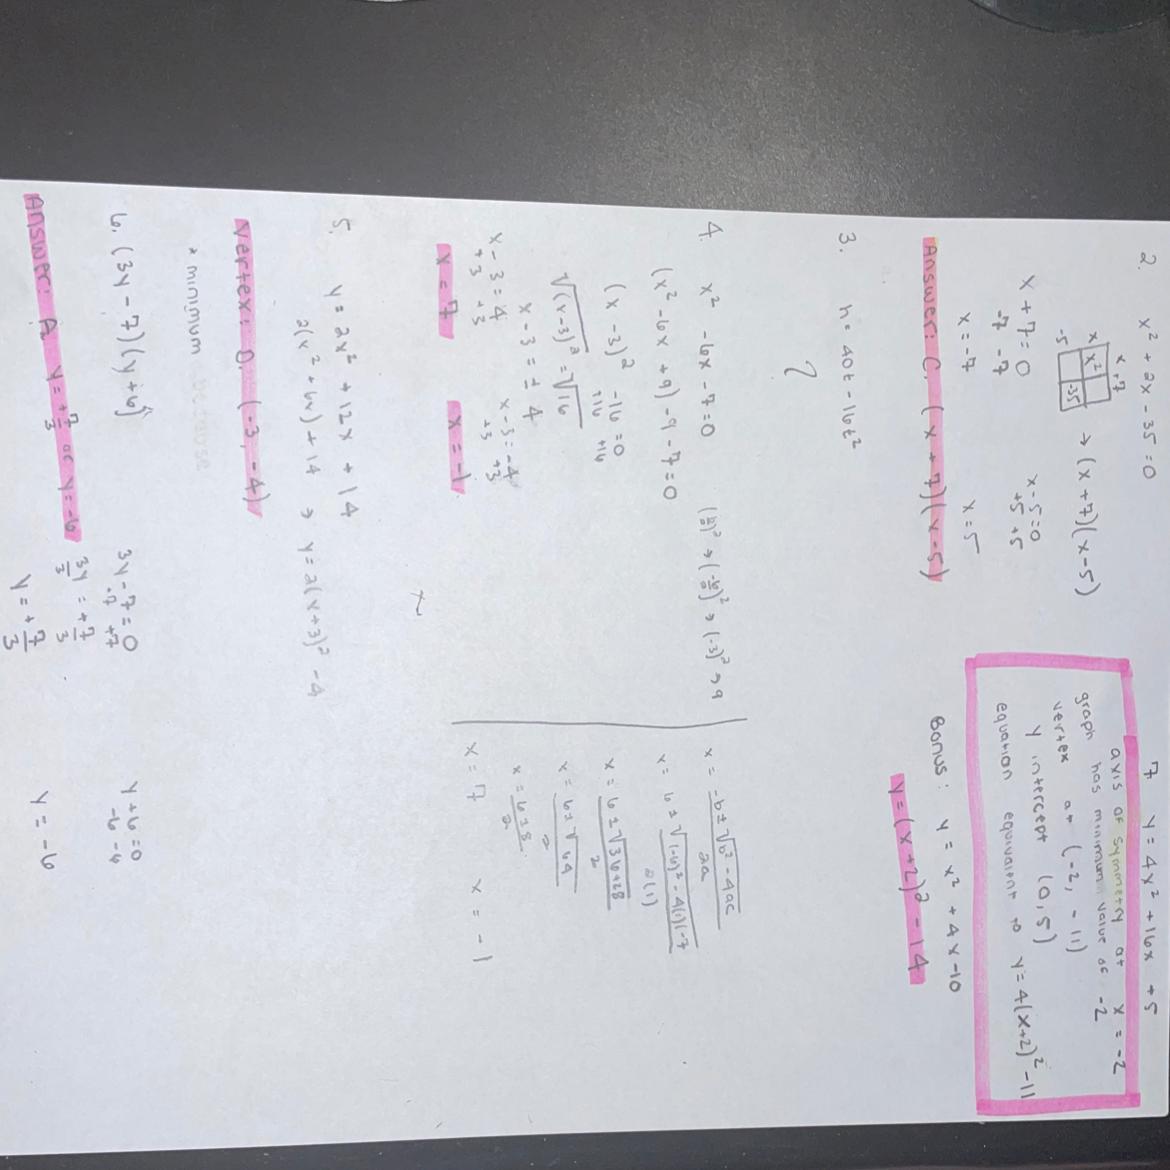 2. x² + 2x - 35 = 0
x + 7
x x²
-5 -35
→ (x + 7)(x - 5)
x + 7 = 0 x - 5 = 0
-7 -7 +5 +5
x = -7 x = 5
Answer: C. (x + 7)(x - 5)
3. h = 40t - 16t²
?
4. x² - 6x - 7 = 0 (b/2)² → (-6/2)² → (-3)² → 9
(x² - 6x + 9) - 9 - 7 = 0
(x - 3)² - 16 = 0
+16 +16
√(x - 3)² = √16
x - 3 = ± 4
x - 3 = 4 x - 3 = -4
+3 +3 +3 +3
x = 7 x = -1
x = -b ± √b² - 4ac / 2a
x = 6 ± √(-6)² - 4(1)(-7 / 2(1)
x = 6 ± √36 + 28 / 2
x = 6 ± √64 / 2
x = 6 ± 8 / 2
x = 7 x = -1
5. y = 2x² + 12x + 14
2(x² + 6x) + 14 → y = 2(x + 3)² - 4
Vertex: D. (-3, -4)
* minimum because
6. (3y - 7)(y + 6)
3y - 7 = 0 y + 6 = 0
+7 +7 -6 -6
3y/3 = +7/3
y = +7/3 y = -6
Answer: A y = +7/3 or y = -6
7 y = 4x² + 16x + 5
axis of symmetry at x = -2
graph has minimum value of -2
vertex at (-2, -11)
y intercept (0, 5)
equation equivalent to y = 4(x+2)² - 11
Bonus: y = x² + 4x - 10
y = (x + 2)² - 14